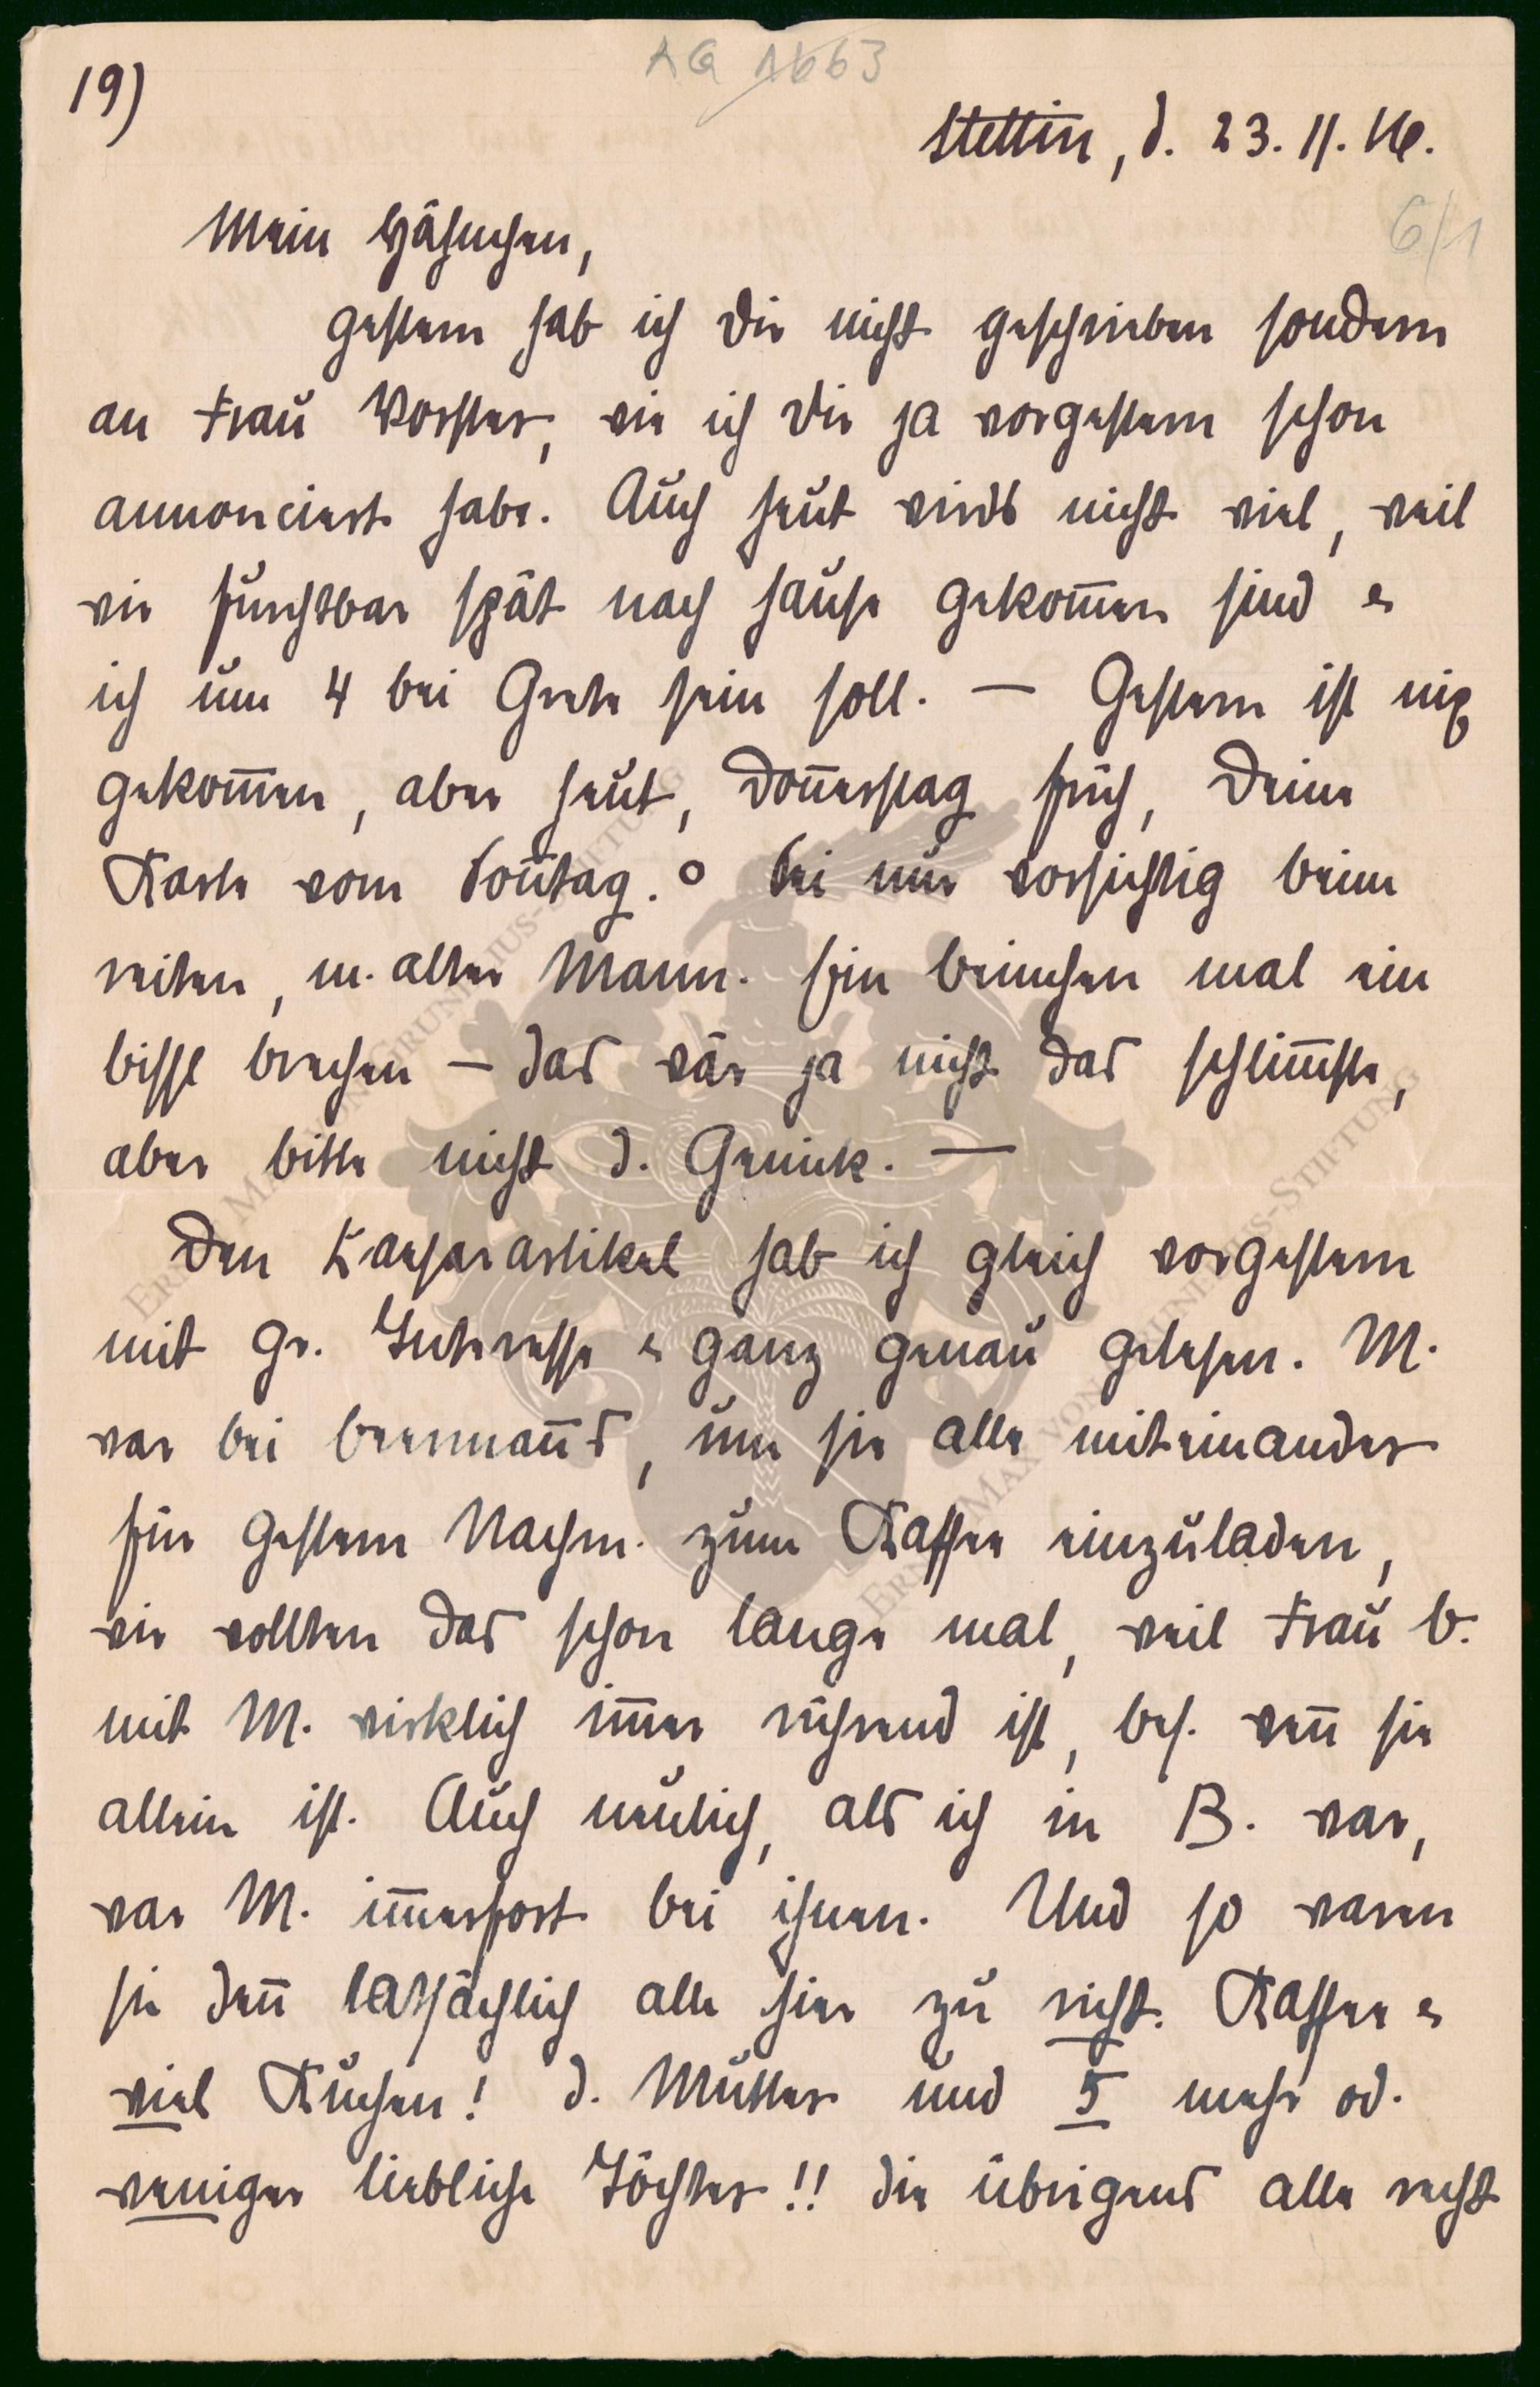 19)
AG 1663
Stettin, d. 23. 11. 16.
6/1
Mein Häschen,
gestern hab ich Dir nicht geschrieben sondern
an Frau Vorster, wie ich Dir ja vorgestern schon
annonciert habe. Auch heut wirds nicht viel, weil
wir furchtbar spät nach hause gekom̄en sind &
ich um 4 bei Grete sein soll. — Gestern ist nix
gekom̄en, aber heut, Don̄erstag früh, Deine
Karte vom Son̄tag. ° Sei nur vorsichtig beim
reiten, m. alter Mann. Ein beinchen mal ein
bissl brechen – das wär ja nicht das schlim̄ste,
aber bitte nicht d. Genick. —
Den artikel hab ich gleich vorgestern
mit gr. Interesse & ganz genau gelesen. M.
war bei , um sie alle miteinander
für gestern Nachm. zum Kaffee einzuladen,
wir wollten das schon lange mal, weil Frau B.
mit M. wirklich im̄er rührend ist, bes. wen̄ sie
allein ist. Auch neulich, als ich in B. war,
war M. im̄erfort bei ihnen. Und so waren
sie den̄ tatsächlich alle hier zu richt. Kaffee &
viel Kuchen! d. Mutter und 5 mehr od.
weniger liebliche Töchter!! die übrigens alle recht
ERNST MAX VON GRUNELIUS-STIFTUNG
ERNST MAX VON GRUNELIUS-STIFTUNG